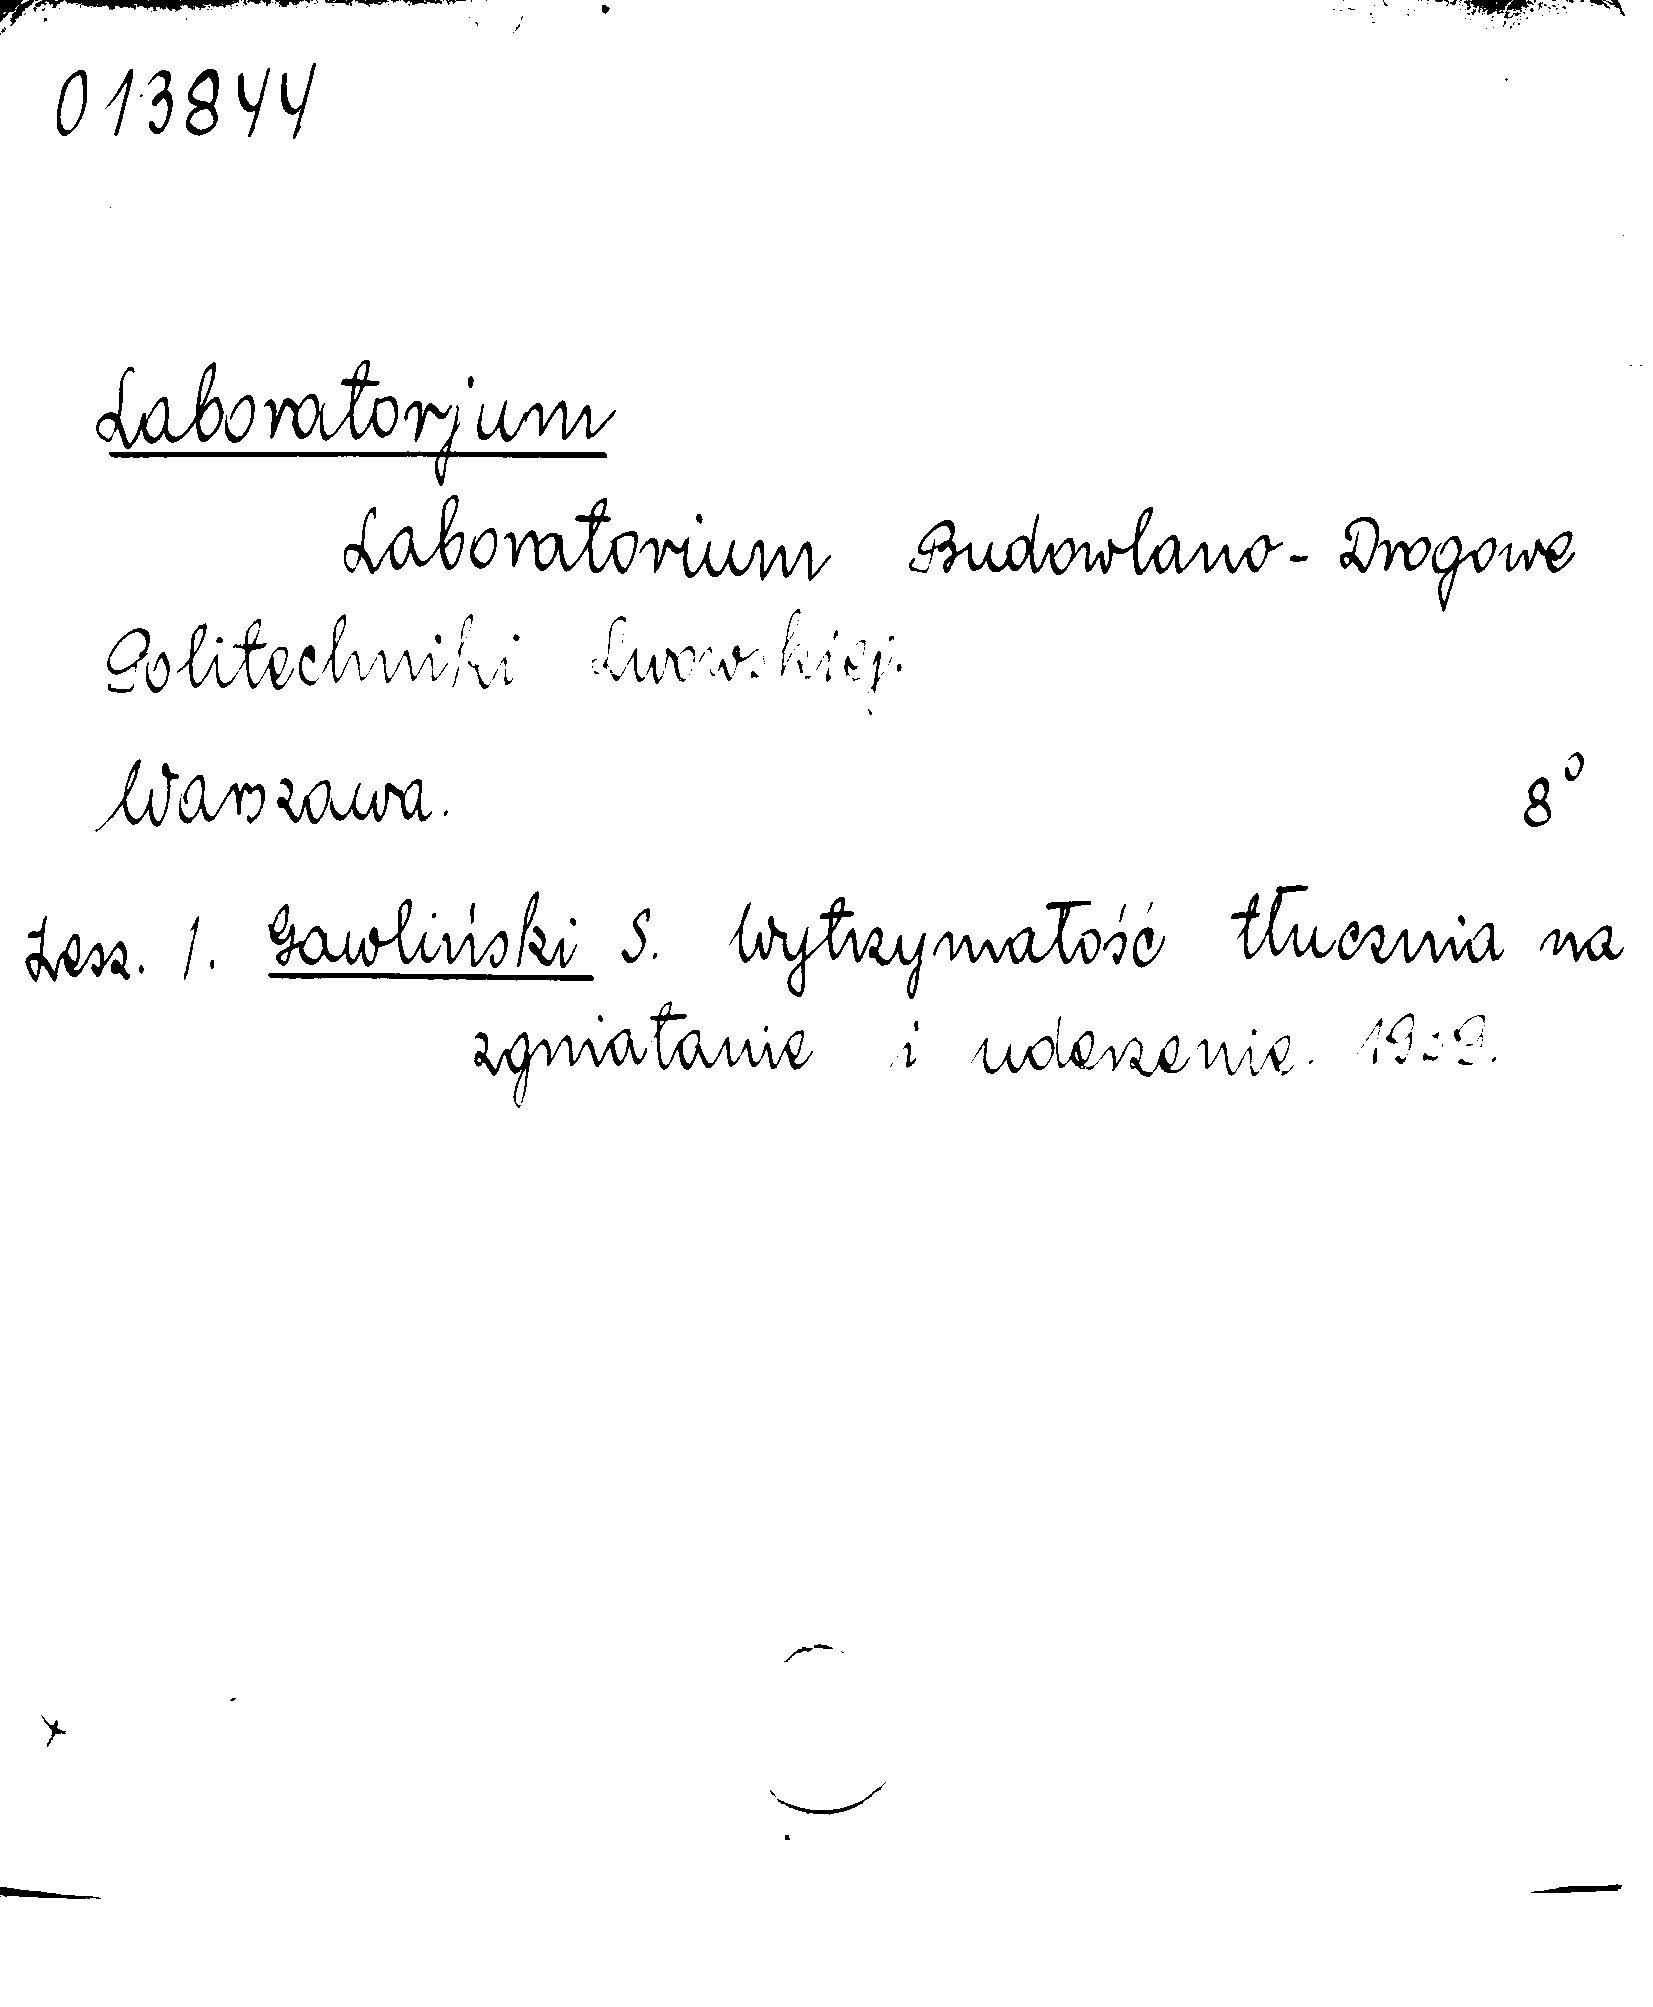 013844
Laboratorjum
Laboratorium Budowlano-Drogowe
Politechniki Lwowskiej.
Warszawa. 8°
Zesz. 1. Gawliński S. Wytrzymałość tłucznia na
zgniatanie i uderzenie.